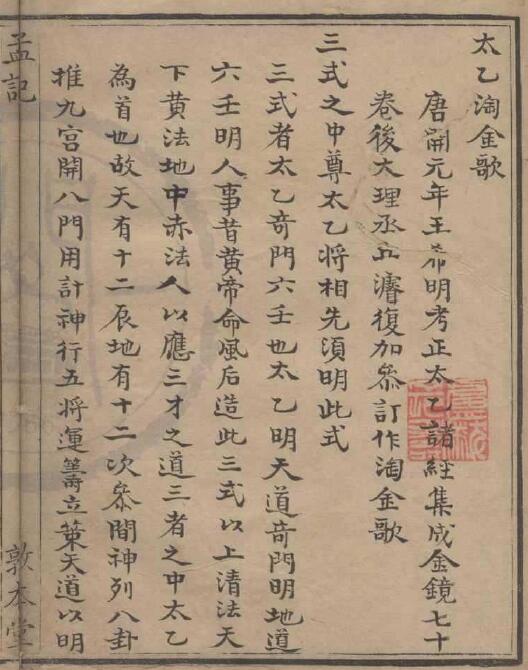 太乙淘金歌
唐開元年王希明考正太乙諸經集成金鏡七十
卷後大理丞丘濬復加參訂作淘金歌
三式之中尊太乙將相先須明此式
三式者太乙奇門六壬也太乙明天道奇門明地道
六壬明人事昔黃帝命風后造此三式以上清法天
下黃法地中赤法人以應三才之道三者之中太乙
為首也故天有十二辰地有十二次叅間神列八卦
推九宮開八門用計神行五將運籌立策天道以明
孟記
敦本堂